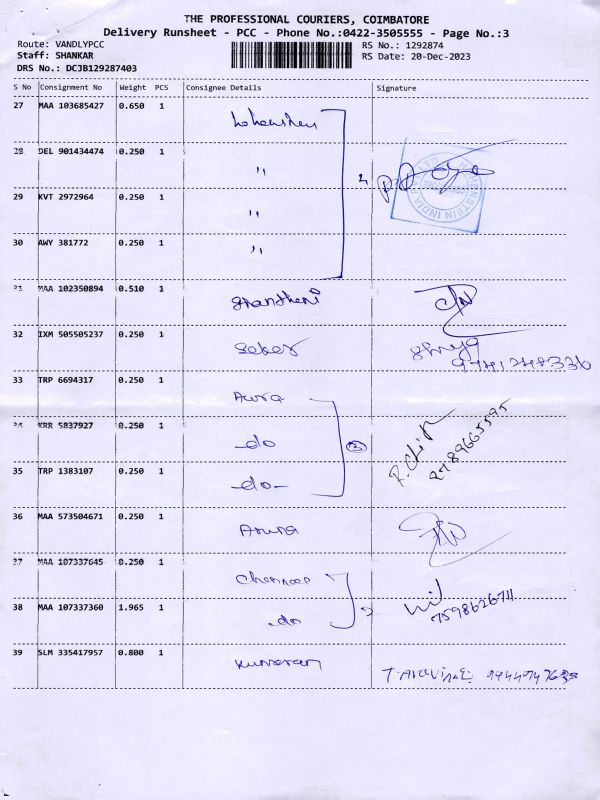 THE PROFESSIONAL COURIERS, COIMBATORE
Delivery Runsheet - PCC - Phone No.:0422-3505555 - Page No.:3
Route: VANDLYPCC
RS No.: 1292874
Staff: SHANKAR
RS Date: 20-Dec-2023
DRS No.: DCJB129287403
S No Consignment No Weight PCS Consignee Details Signature
27 MAA 103685427 0.650 1
28 DEL 901434474 0.250 1 "
29 KVT 2972964 0.250 1 "
30 AWY 381772 0.250 1 "
4
31 MAA 102350894 0.510 1
32 IXM 505505237 0.250 1
9741248336
33 TRP 6694317 0.250 1 Aura
34 KRR 5837927 0.250 1 do
3
35 TRP 1383107 0.250 1 -do-
36 MAA 573504671 0.250 1
37 MAA 107337645 0.250 1
38 MAA 107337360 1.965 1 do
2
7598626711
39 SLM 335417957 0.800 1 kumaran